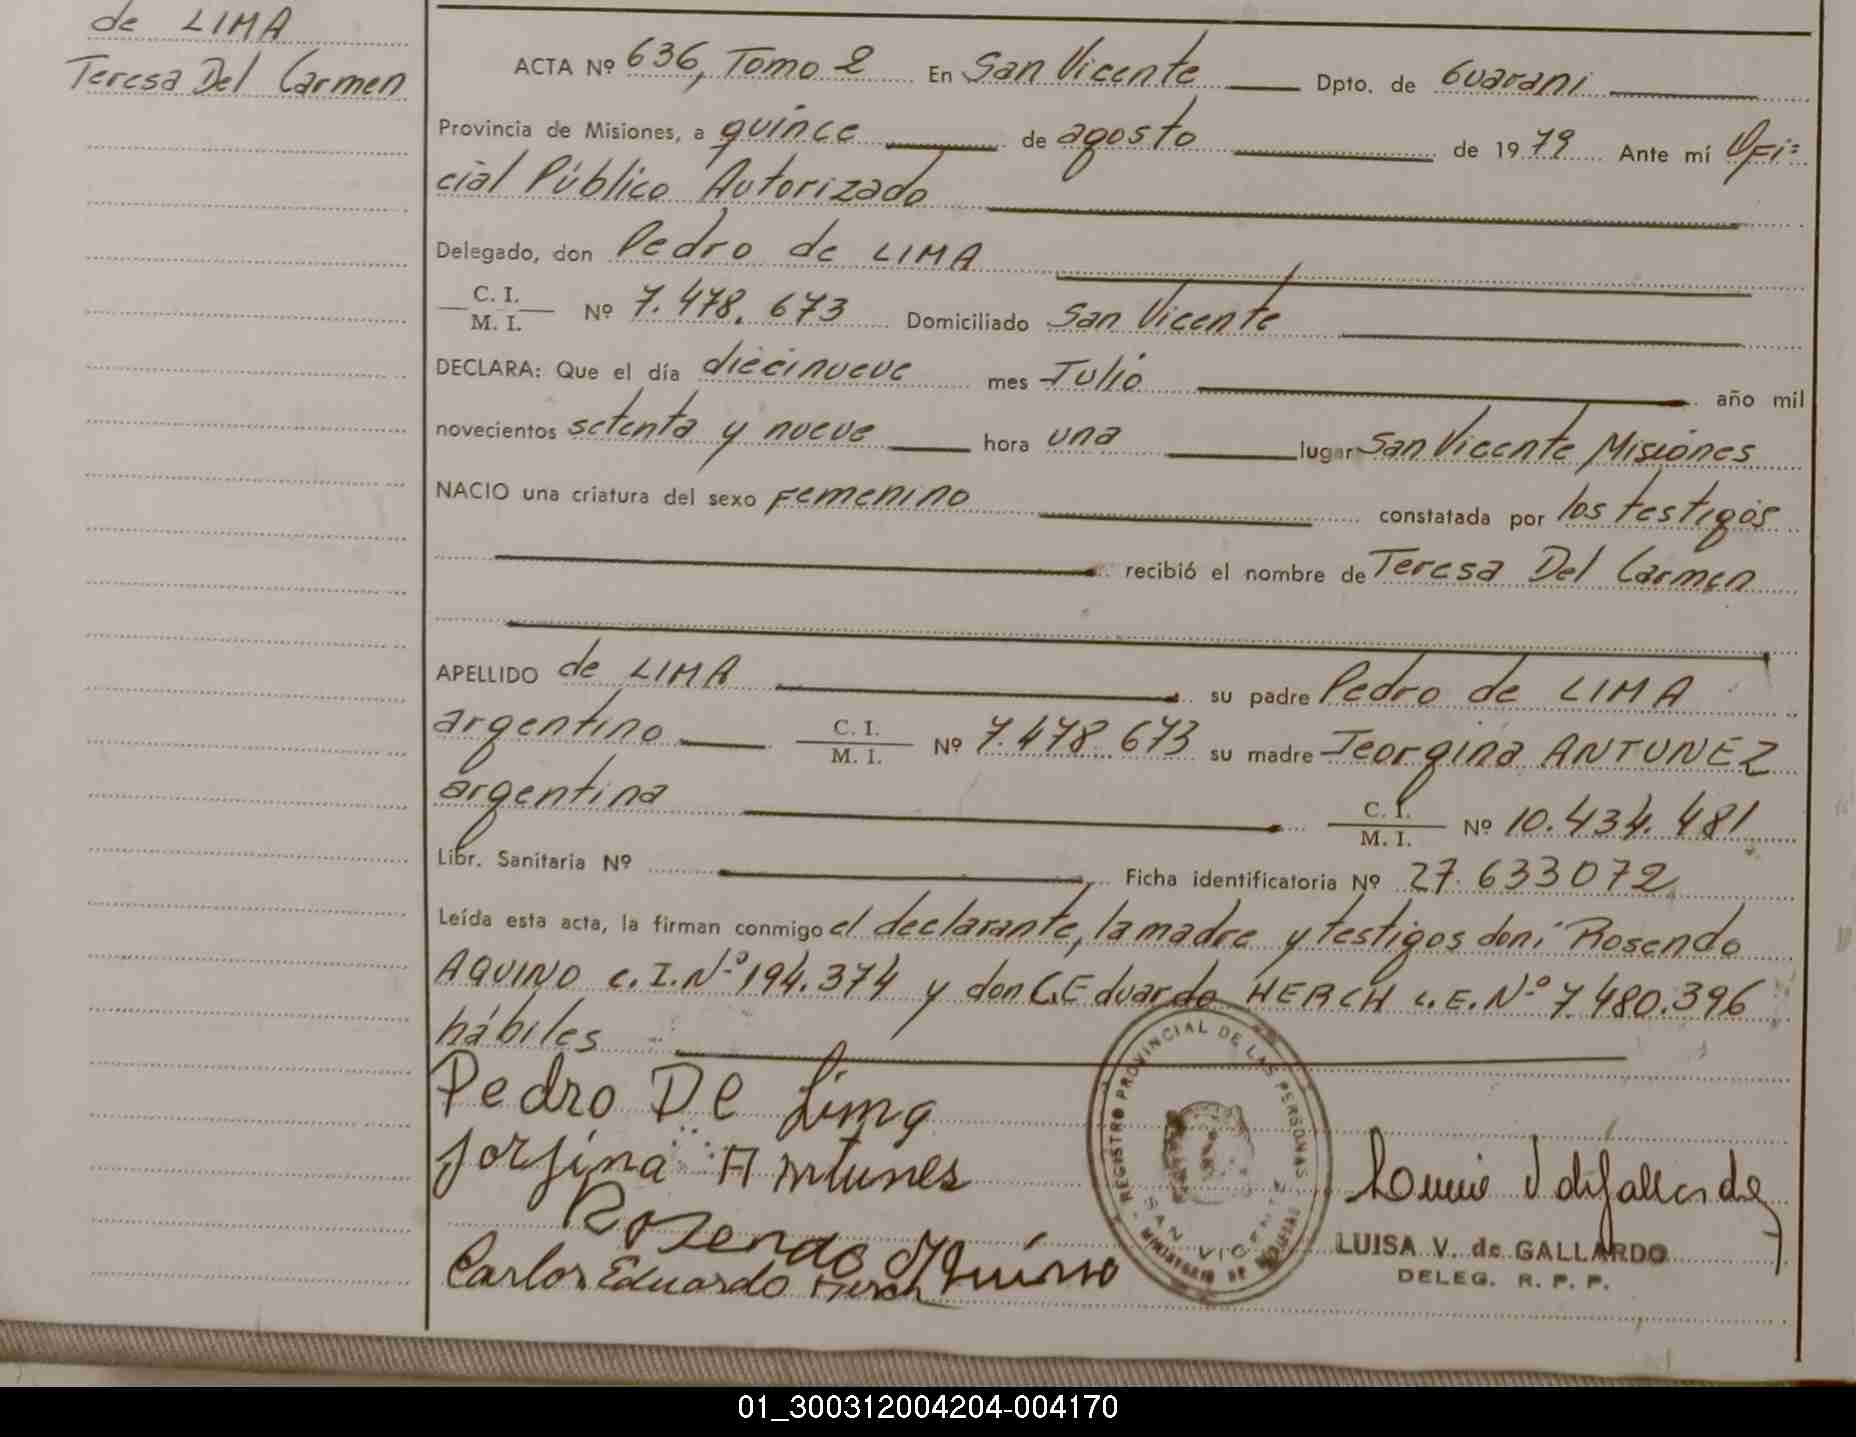 de LIMA
Teresa Del Carmen
ACTA Nº 636, Tomo 2 En San Vicente Dpto. de Guarani
Provincia de Misiones, a quince de agosto de 1979 Ante mí Ofi=
cial Público Autorizado
Delegado, don Pedro de LIMA
C. I.
M. I. Nº 7.478.673 Domiciliado San Vicente
DECLARA: Que el día diecinueve mes Julio año mil
novecientos setenta y nueve hora una lugar San Vicente Misiones
NACIO una criatura del sexo Femenino constatada por los testigos
recibió el nombre de Teresa Del Carmen
APELLIDO de LIMA su padre Pedro de LIMA
argentino C. I. M. I. Nº 7.478.673 su madre Jeorgina ANTUNEZ
argentina C. I. M. I. Nº 10.434.481
Libr. Sanitaria Nº Ficha identificatoria Nº 27.633072
Leída esta acta, la firman conmigo el declarante, la madre y testigos don: Rosendo
AQUINO c.I.Nº 194.374 y don C.Eduardo HERCH L.E.Nº 7.480.396
hábiles
Pedro De Lima
Jorjina Antunes
Rozendo Aquino
Carlos Eduardo Herch
REGISTRO PROVINCIAL DE LAS PERSONAS
SAN VICENTE
MINISTERIO DE
LUISA V. de GALLARDO
DELEG. R. P. P.
01_300312004204-004170